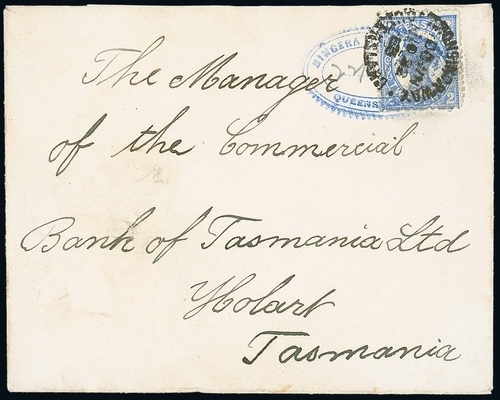 BINGERA
QUEENS
The Manager
of the Commercial
Bank of Tasmania Ltd
Hobart
Tasmania